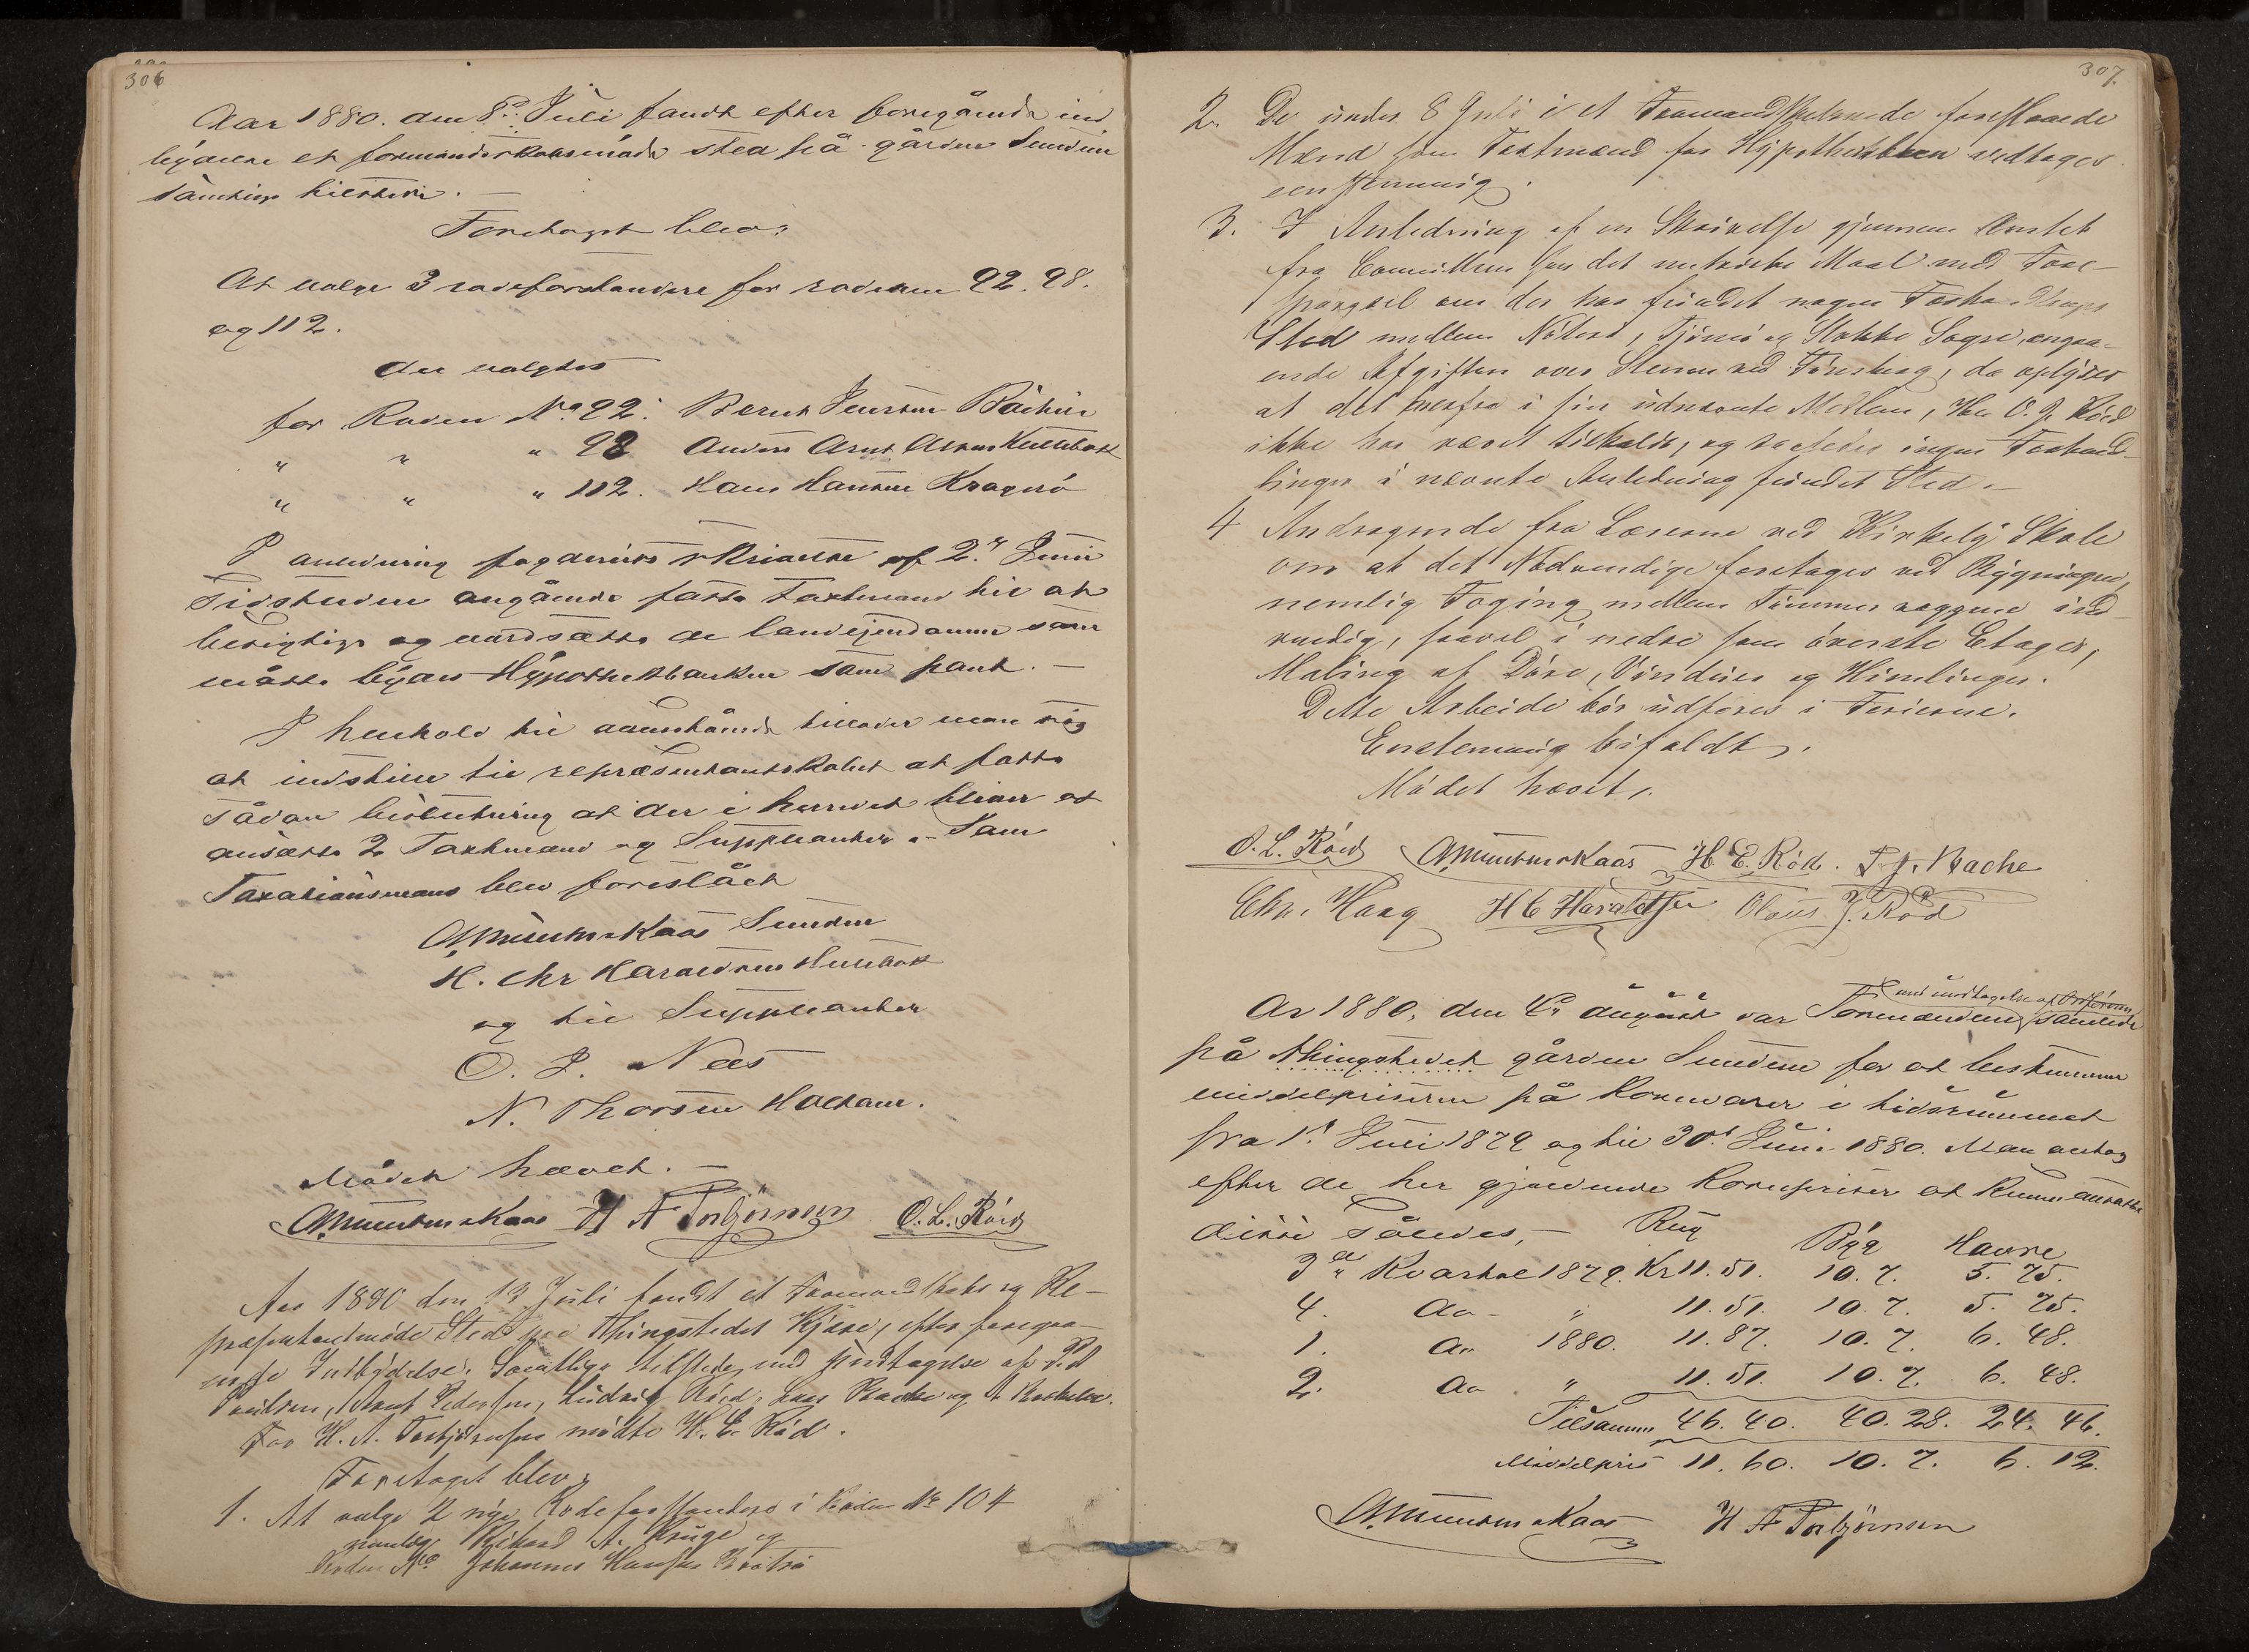 306
Aar 1880. den 8de Juli fandt efter foregående ind
bydelse et formandskabsmøde sted på gården Sundene
samtlige tilstede. —
Foretaget blev:
At valge 3 rodeforstandere for roderne 92. 98.
og 112.
der valgtes
for Roden No 92. Bernt Jensen
" " " 98 Anders Arnt
" " " 112. Hans Hansen Kragerö
I anledning fogderiets skrivelse af 2den Juni
sidstleden angående faste Taxtmænd til at
besigtige og værdsætte de landejendomme som
måtte bydes Hypothekbanken som pant. —
I henhold til ovenstående tillader man sig
at indstille til repræsentantskabet at fatte
sådan beslutning at der i herredet bliver at
ansætte 2 Taxtmænd og Suppleanter. – Som
Taxationsmænd blev foreslået
A Mientom Kaas Sundene
H. Chr Haraldsen
og til Suppleanter
O. J. Næs
N. Thorsen Holtane.
Mødet hævet. —
H A Torbjörnsen O. L. Röed
Aar 1880 den 13 Juli fandt et Formandskabs og Re-
præsentantmøde Sted paa Thingstedet Kjære, efter foregaa-
ende Indbydelse. Samtlige tilstede med Undtagelse af P. A
Paulsen, Arnt Pedersen, Ludvig Röed, Lars Bache og A
For H. A. Torbjörnsen mödte H. E. Röd.
Foretaget blev;
1. At valge 2 nye Rodeforstandere i Roden No 104
nemlig Rikard A. Kruge og
Roden No Johannes Hansen Bratrö
307.
2. De under 8 Juli i et Formandskabmøde foreslaaede
Mænd som Taxtmænd for Hypothekbanken vedtages
eenstemmig.
3. I Anledning af en Skrivelse gjennem Amtet
fra Comitteen for det metriske Maal med Fore-
spørgsel om der har fundet nogen Forhandlings
Sted mellem Nöterö, Tjömö og Stokke Sogne, angaa-
ende Afgiften over Stenen ved Tönsberg, da oplyses
at det herfra i sin udnævnte Medlem, Hr. O. J. Röed
ikke har været tilkaldt, og saaledes ingen Forhand-
linger i nævnte Anledning fundet Sted. –
4 Andragende fra Læreren ved Kirkely Skole
om at det Nödvendige foretages ved Bygningen,
nemlig Foging mellem Tömmervæggene ind-
vendig, saavel i nedre som överste Etager,
Maling af Döre, Vinduer og Himlinger.
Dette Arbeide bör udföres i Ferierne.
Enstemmig bifaldt.
Mödet hævet,.
O. L. Röed H. E. Röd. F. J. Bache
Chr. Haag H C Haraldsen Olaus J. Röd
med undtagelse af Ordföreren
Ar 1880, den 4de august var Formændene samlede
på thingstedet gården Sundene for at bestemme
middelpriserne på Kornvarer i tidsrummet
fra 1st Juli 1879 og til 30te Juni 1880. Man antog
efter de her gjældende Kornpriser at kunne ansætte
disse således, —
Rug Byg Havre
3de Kvartal 1879. Kr 11. 51. 10. 7. 5. 75.
4. do – " 11. 51. 10. 7. 5. 75.
1. do 1880. 11. 87. 10. 7. 6. 48.
2. do " 11. 51. 10. 7. 6. 48.
Tilsammen 46. 40. 40. 28. 24. 46.
Middelpris 11. 60. 10. 7. 6. 12.
H A Torbjörnsen